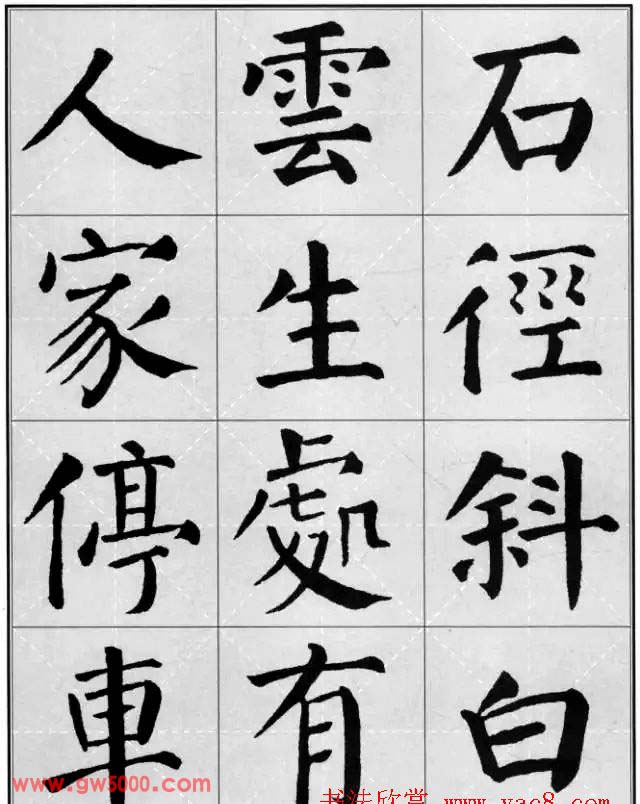 石徑斜白
雲生處有
人家停車
www.gw5000.com
书法欣赏 www.yac8.com